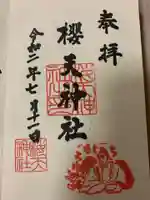 奉拝
櫻天神社
令和二年七月十一日